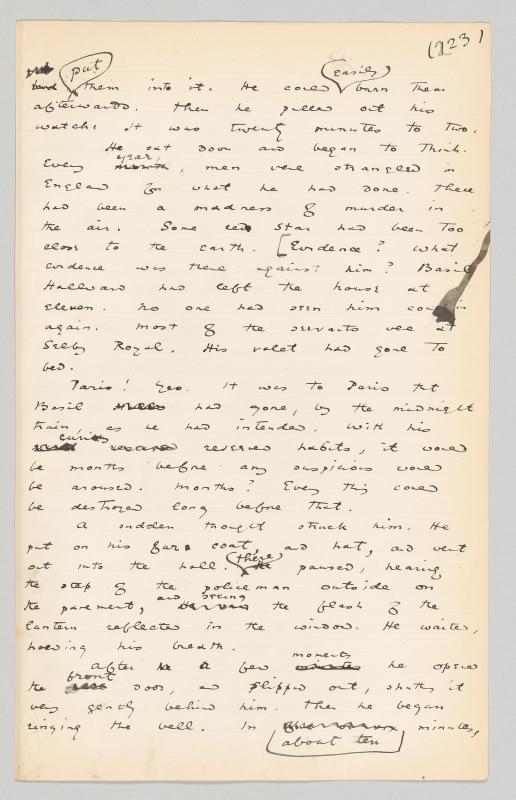 (223)
put them into it. He could easily burn them
afterwards. Then he pulled out his
watch: it was twenty minutes to two.
He sat down and began to think.
Every year, men were strangled in
England for what he had done. There
had been a madness of murder in
the air. Some red star had been too
close to the earth. [Evidence? What
evidence was there against him? Basil
Hallward had left the house at
eleven. No one had seen him come in
again. Most of the servants were at
Selby Royal. His valet had gone to
bed.
Paris! Yes. It was to Paris that
Basil had gone, by the midnight
train, as he had intended. With his
curious reserved habits, it would
be months before any suspicions would
be aroused. Months? Every thing could
be destroyed long before that.
A sudden thought struck him. He
put on his fur coat, and hat, and went
out into the hall. There he paused, hearing
the step of the policeman outside on
the pavement, and seeing the flash of the
lantern reflected in the window. He waited,
holding his breath.
After a few moments he opened
the front door, and slipped out, shutting it
very gently behind him. Then he began
ringing the bell. In about ten minutes,